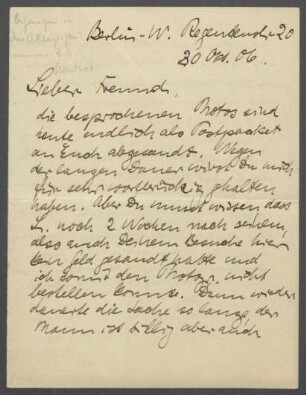 Berlin-W. Regentenstr 20
30 Okt. 06.
Lieber Freund,
die besprochenen Photos sind
heute endlich als Postpacket
an Euch abgesandt. Wegen
der langen Dauer wirst Du mich
für sehr wortbrüchig gehalten
haben. Aber Du musst wissen dass
L. noch 2 Wochen nach seinem,
also auch Deinem Besuche hier
kein Geld gesandt hatte und
ich somit den Photogr. nicht
bestellen konnte. Dann wieder
dauerte die Sache so lange der
Mann ist billig aber auch